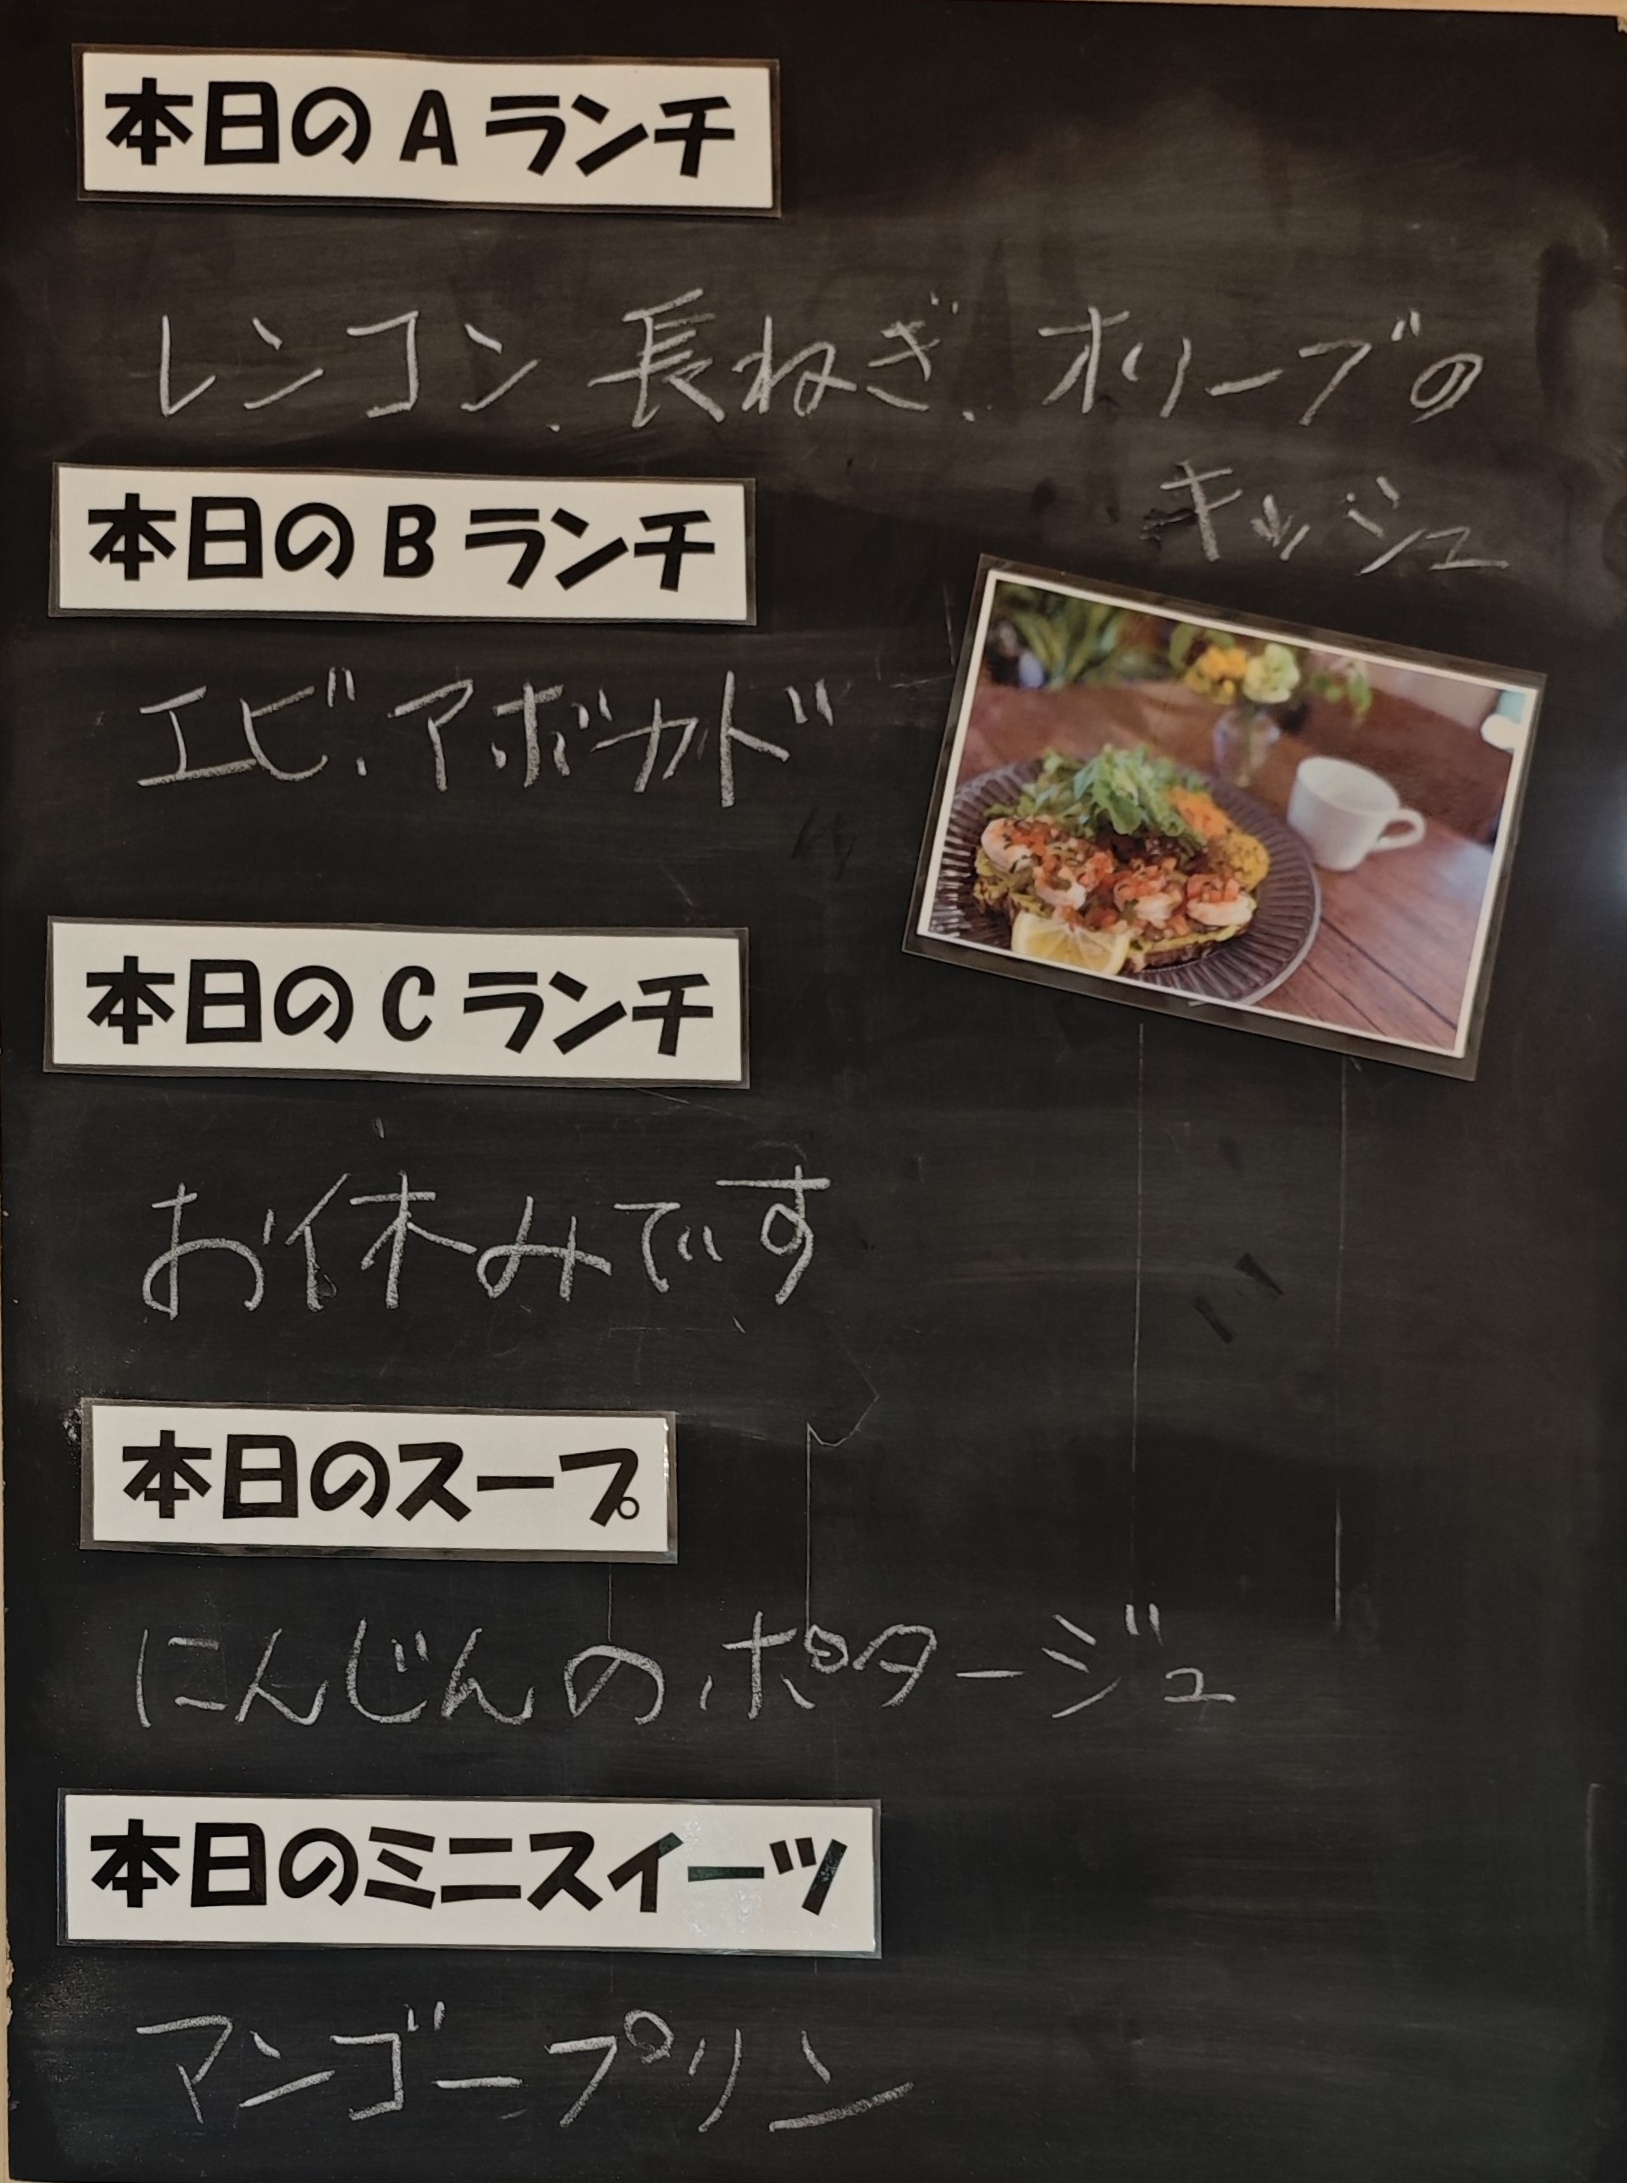 本日のAランチ
レンコン、長ねぎ、オリーブの
キッシュ
本日のBランチ
エビ、アボカド
本日のCランチ
お休みです
本日のスープ
にんじんのポタージュ
本日のミニスイーツ
マンゴープリン